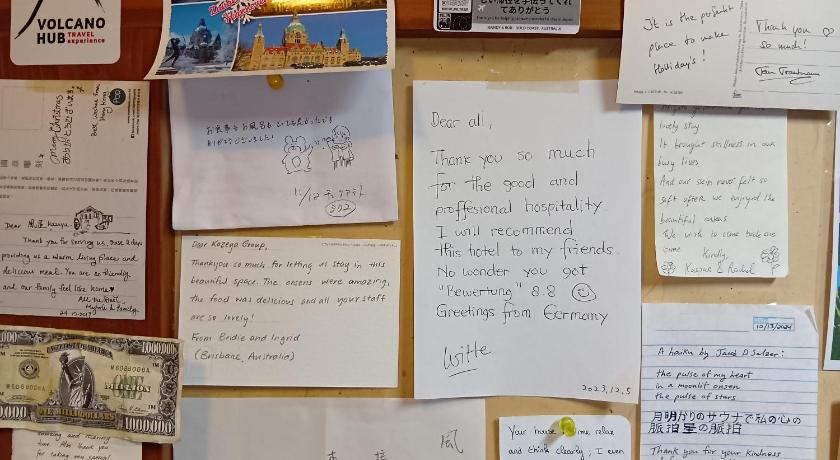 VOLCANO
HUB TRAVEL
experience
てありがとう
HANDY 8 HUB GOLD COAST, AUSTRALIA
It is the perfect
place to make
Holliday's!
Thank you ♡
so much!
Merry Christmas
ありがとうございます
Best wishes from
Hong Kong
Dear
Thank you for serving us, these 2 days
providing us a warm, living place and
delicious meal. You are so friendly
and our family feel like home♥
All the best,
& Family
24-12-2017
お食事もお風呂もとても良かったです
ありがとうございました!
11/12
572
Dear Kazeya Group,
Thankyou so much for letting us stay in this
beautiful space. The onsens were amazing,
the food was delicious and all your staff
are so lovely!
From Bridie and Ingrid
(Brisbane, Australia)
Dear all,
Thank you so much
for the good and
proffesional hospitality.
I will recommend
this hotel to my friends.
No wonder you got
"Bewertung" 8.8
Greetings from Germany
Witte
2023.12.5
lovely stay.
It brought stillness in our
busy lives
And our skin never felt so
soft after we enjoyed the
beautiful onsens.
We wish to come back one
Kindly,
& Rachel
1000000
ONE MILLION DOLLARS
MILLION
1000000
time. Also thank you
for taking my special
風
Your house me relax
and think clearly, I even
10/13/2024
A haiku by Jacob D Salzer:
the pulse of my heart
in a moonlit onsen
the pulse of stars
月明かりのサウナで私の心の
脈拍星の脈拍
Thank you for your kindness